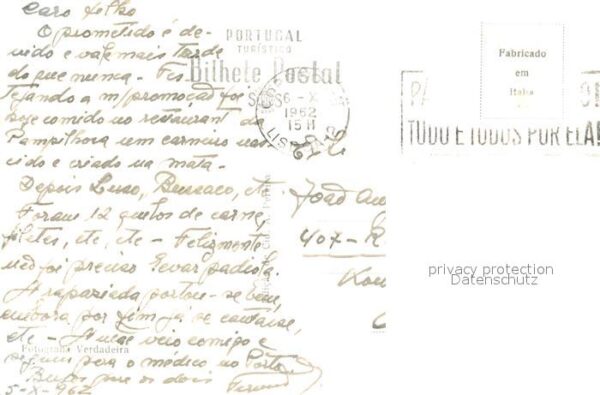 Caro
O prometido é de-
vido e vale mais tarde
do que nunca - Fes-
tejando a m/promoção foi
hoje comido no restaurant da
Pampilhosa um carneiro nas-
cido e criado na mata.
Depois Luso, Bussaco, etc.
Foram 12 quilos de carne,
filetes, etc, etc - Felizmente
não foi preciso levar padiola.
A rapaziada portou-se bem,
embora por fim já se cantasse,
etc - A mãe veio comigo e
seguiu para o médico no Porto
para os dois
5-X-962
Fotografia Verdadeira
PORTUGAL
TURÍSTICO
Bilhete Postal
6-X
1962
15H
LIS
TUDO E TODOS POR ELA!
Fabricado
em
Italia
João
407-R.
privacy protection
Datenschutz